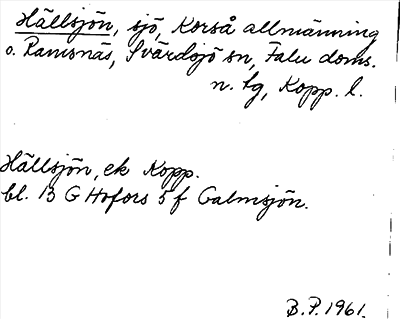 Hällsjön, sjö, Korså allmänning
o. Ramsnäs, Svärdsjö sn, Falu doms.
n. tg, Kopp. l.
Hällsjön, ek Kopp.
bl. 13 G Hofors 5 f Galmsjön.
B.P. 1961.